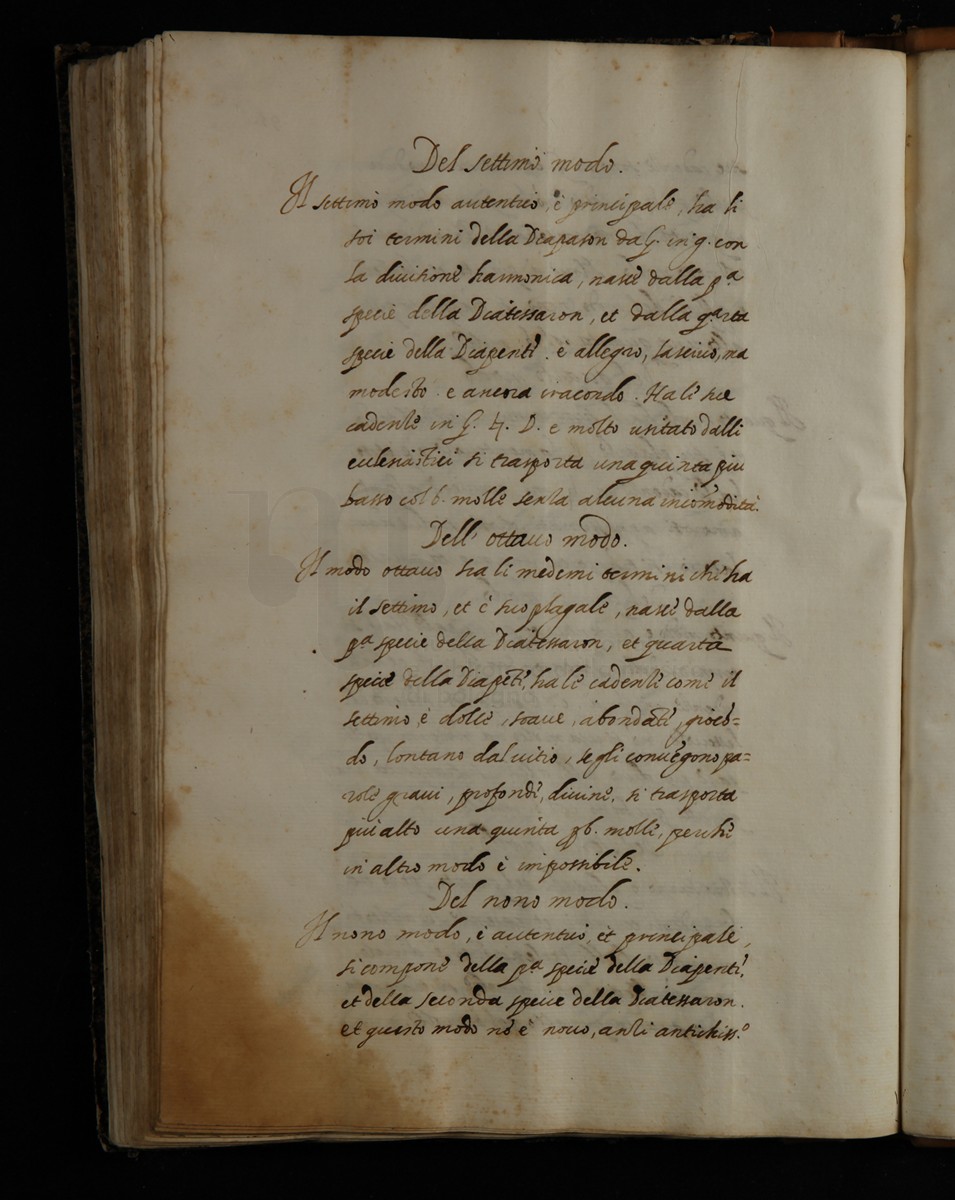 Del settimo modo.
Il settimo modo autentico, è principale, ha li
soi termini della Diapason da G. in g. con
la divisione harmonica, nasce dalla pª
specie della Diatessaron, et dalla qarta
specie della Diapente. è allegro, lascivo, ma
modesto. e ancora iracondo. Ha le sue
cadenze in G. ♮. D. e molto usitato dalli
eclesiastici si trasporta una quinta piu
basso col b. molle senza alcuna incõmodità.
Dell' ottavo modo.
Il modo ottavo ha li medemi termini che ha
il settimo, et è suo plagale, nasce dalla
pª specie della Diatessaron, et quarta
specie della Diapẽte, ha le cadenze come il
settimo, è dolce, soave, abondãte, giocõ=
do, lontano dal vitio, se gli convẽgono pa=
role gravi, profonde, divine, si trasporta
piu alto una quinta p b. molle, perche
in altro modo è impossibile.
Del nono modo.
Il nono modo, è autentico, et principale,
si compone della pª specie della Diapente,
et della seconda specie della Diatessaron.
et questo modo nõ è novo, anzi antichiss.º